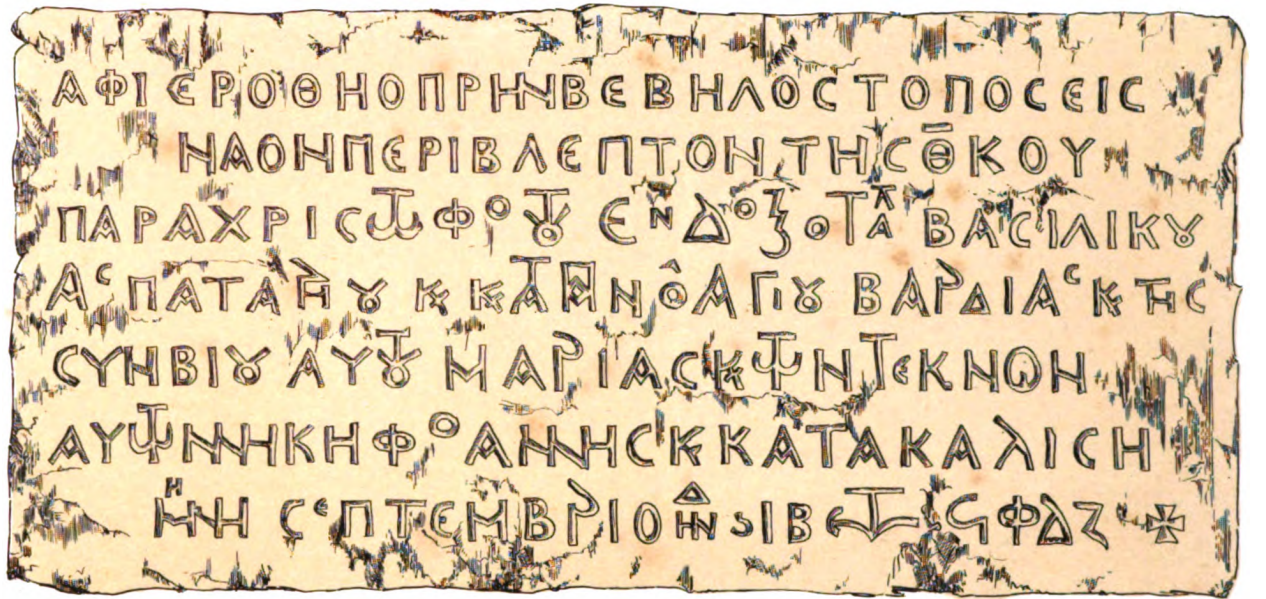 ΑΦΙΕΡΟΘΗΟΠΡΗΝΒΕΒΗΛΟϹΤΟΠΟϹΕΙϹ
ΝΑΟΝΠΕΡΙΒΛΕΠΤΟΝΤΗϹΘ̅ΚΟΥ
ΠΑΡΑΧΡΙϹΤωΦΟΤȣ ΕΝΔΟΞΟΤΑΛ ΒΑϹΙΛΙΚȣ
ΑϹΠΑΤΑΡΗȣ Κ ΚΑΤΑΠΑΝΟ ΑΓΙȣΒΑΡΔΙΑϹ Κ ΤΗϹ
ϹΥΝΒΙȣ ΑΥΤȣ ΜΑΡΙΑϹ Κ ΤωΝ ΤΕΚΝΟΝ
ΑΥΤωΝΝΗΚΗΦΟ ΑΝΝΗϹ Κ ΚΑΤΑΚΑΛΙϹΗ
ΜΗΝΗ ϹΕΠΤΕΜΒΡΙΟ ΙΝΔ ΙΒ ΕΤ ϚΦΛΖ ✠